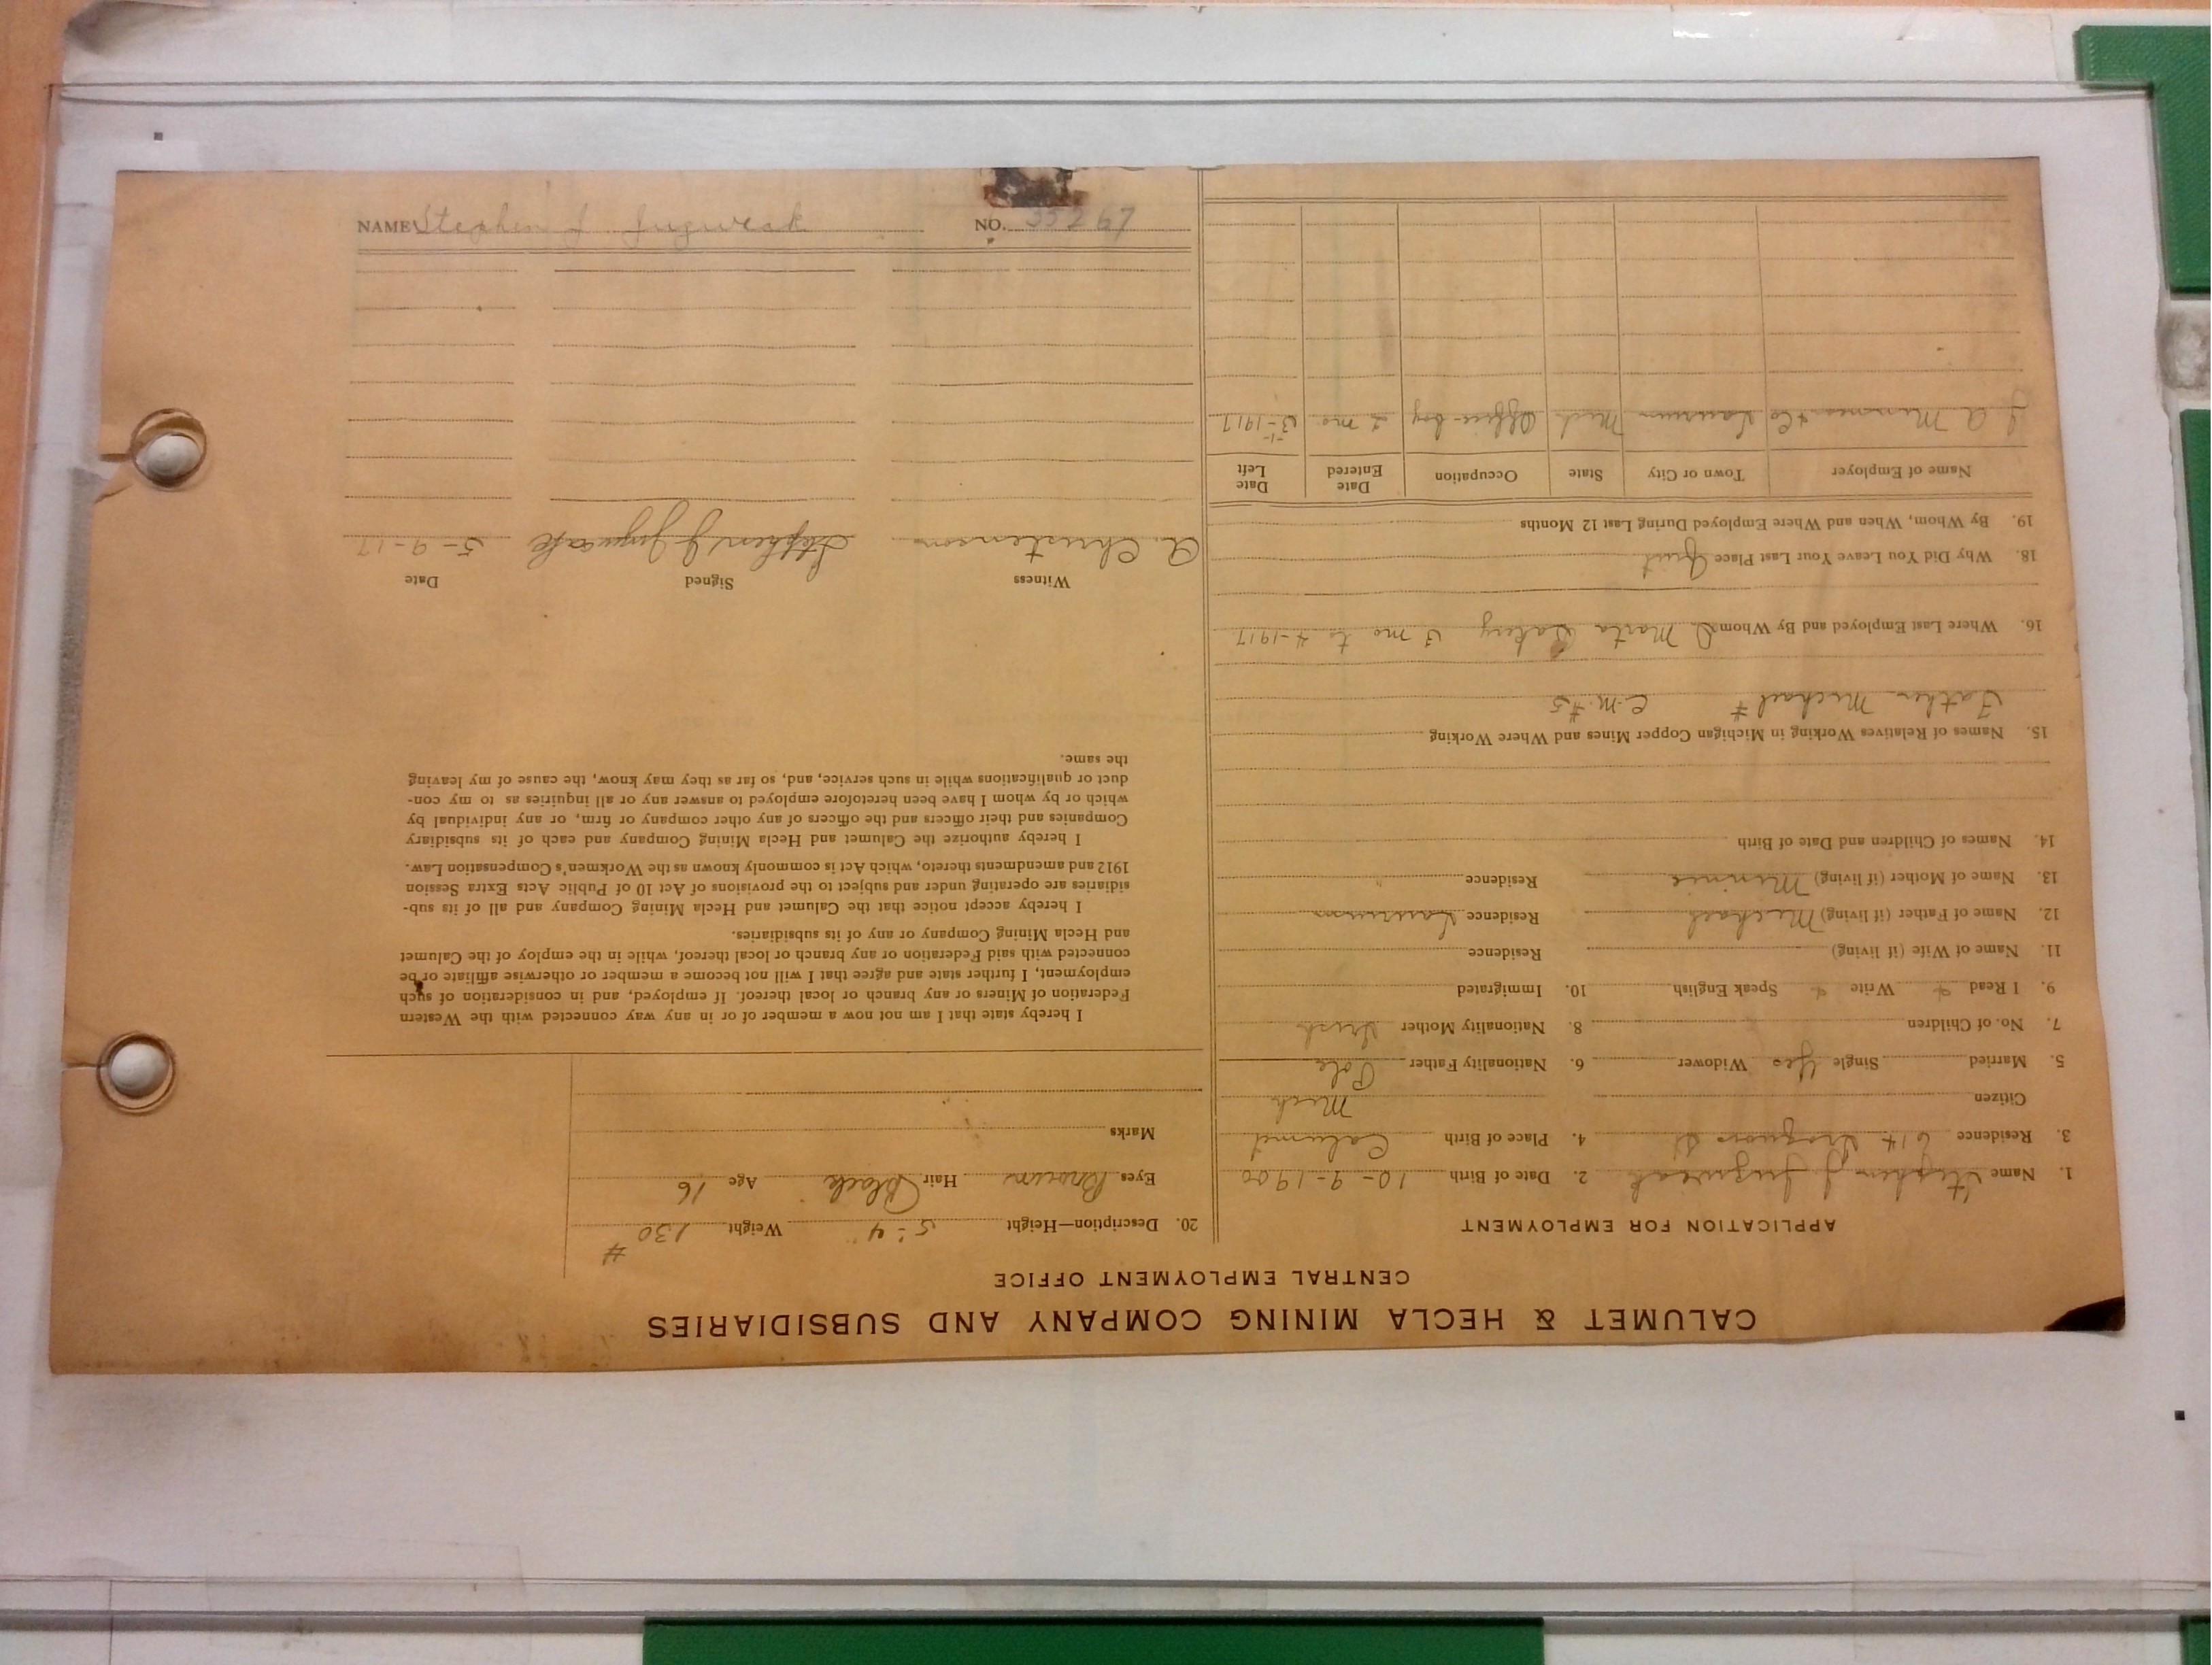 CALUMET & HECLA MINING COMPANY AND SUBSIDIARIES
CENTRAL EMPLOYMENT OFFICE
APPLICATION FOR EMPLOYMENT
1. Name Stephen J. Jugweak 2. Date of Birth 10-9-1900
3. Residence 614 Iroquois St 4. Place of Birth Calumet
Citizen Mich
5. Married Single Yes Widower 6. Nationality Father Pole
7. No. of Children 8. Nationality Mother Irish
9. I Read Write Speak English 10. Immigrated
11. Name of Wife (if living) Residence
12. Name of Father (if living) Michael Residence Laurium
13. Name of Mother (if living) Minnie Residence "
14. Names of Children and Date of Birth
15. Names of Relatives Working in Michigan Copper Mines and Where Working
Father Michael # C.M. #5
16. Where Last Employed and By Whom Marta Bakery 3 mo to 4-1917
18. Why Did You Leave Your Last Place Quit
19. By Whom, When and Where Employed During Last 12 Months
Name of Employer Town or City State Occupation Date Entered Date Left
J A Minnear & Co Laurium Mich Office-boy 2 mo 3-1-1917
20. Description—Height 5'-4" Weight 130 #
Eyes Brown Hair Black Age 16
Marks
I hereby state that I am not now a member of or in any way connected with the Western
Federation of Miners or any branch or local thereof. If employed, and in consideration of such
employment, I further state and agree that I will not become a member or otherwise affiliate or be
connected with said Federation or any branch or local thereof, while in the employ of the Calumet
and Hecla Mining Company or any of its subsidiaries.
I hereby accept notice that the Calumet and Hecla Mining Company and all of its sub-
sidiaries are operating under and subject to the provisions of Act 10 of Public Acts Extra Session
1912 and amendments thereto, which Act is commonly known as the Workmen's Compensation Law.
I hereby authorize the Calumet and Hecla Mining Company and each of its subsidiary
Companies and their officers and the officers of any other company or firm, or any individual by
which or by whom I have been heretofore employed to answer any or all inquiries as to my con-
duct or qualifications while in such service, and, so far as they may know, the cause of my leaving
the same.
Witness Signed Date
A. Christenson Stephen J Jugweak 5-9-17
NAME Stephen J Jugweak NO. 35267